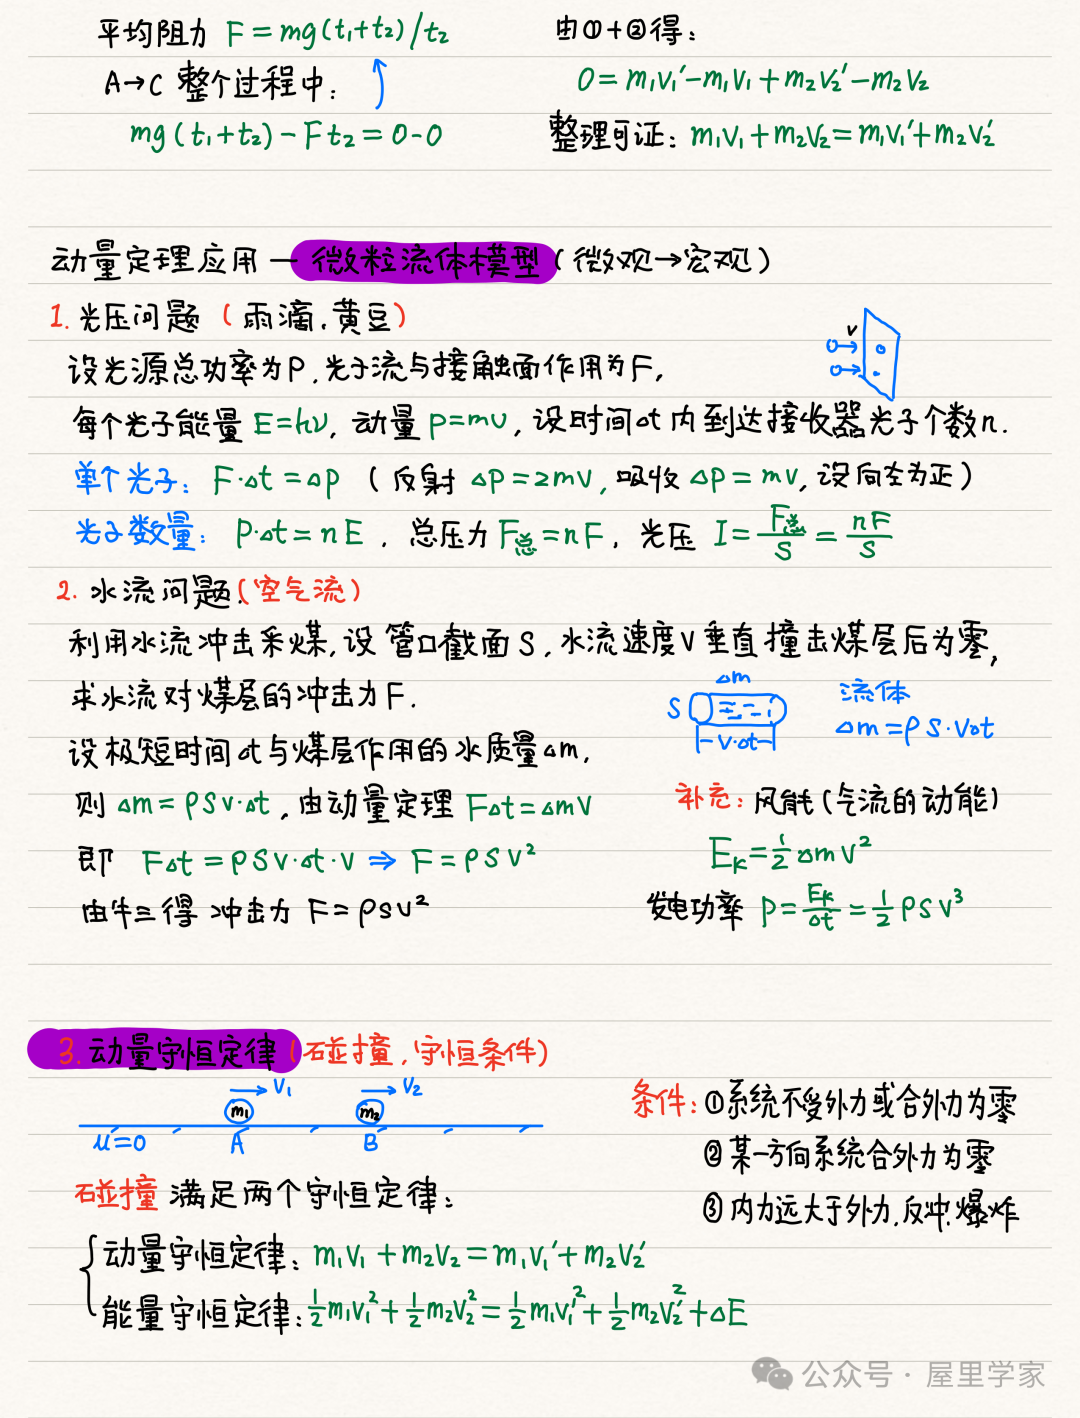 平均阻力 F=mg(t₁+t₂)/t₂
A→C 整个过程中:
mg(t₁+t₂)-Ft₂=0-0
由①+②得:
0=m₁v₁′-m₁v₁+m₂v₂′-m₂v₂
整理可证: m₁v₁+m₂v₂=m₁v₁′+m₂v₂′
动量定理应用—微粒流体模型(微观→宏观)
1. 光压问题 (雨滴.黄豆)
v
设光源总功率为P.光子流与接触面作用为F,
每个光子能量 E=hν, 动量 p=mv, 设时间△t内到达接收器光子个数n.
单个光子: F·△t=△p (反射 △p=2mv, 吸收 △p=mv, 设向左为正)
光子数量: P·△t=nE, 总压力F总=nF, 光压 I=F总/S=nF/S
2. 水流问题.(空气流)
利用水流冲击采煤,设管口截面S,水流速度V垂直撞击煤层后为零,
求水流对煤层的冲击力F.
△m
S
V·△t
流体
△m=ρS·V△t
设极短时间△t与煤层作用的水质量△m,
则 △m=ρSv·△t, 由动量定理 F△t=△mv
即 F△t=ρSv·△t·v ⇒ F=ρSv²
由牛三得 冲击力 F=ρsv²
补充: 风能(气流的动能)
Eₖ=½△mv²
发电功率 P=Eₖ/△t=½ρSv³
3. 动量守恒定律(碰撞.守恒条件)
V₁ V₂
m₁ m₂
μ=0 A B
条件: ①系统不受外力或合外力为零
②某一方向系统合外力为零
③内力远大于外力.反冲.爆炸
碰撞 满足两个守恒定律:
动量守恒定律: m₁v₁+m₂v₂=m₁v₁′+m₂v₂′
能量守恒定律: ½m₁v₁²+½m₂v₂²=½m₁v₁′²+½m₂v₂′²+△E
公众号·屋里学家